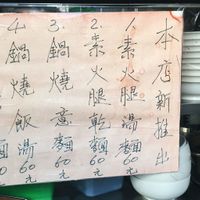 本店新推出
1.素火腿湯麵60元
2.素火腿乾麵60元
3.鍋燒意麵60元
4.鍋燒飯湯60元